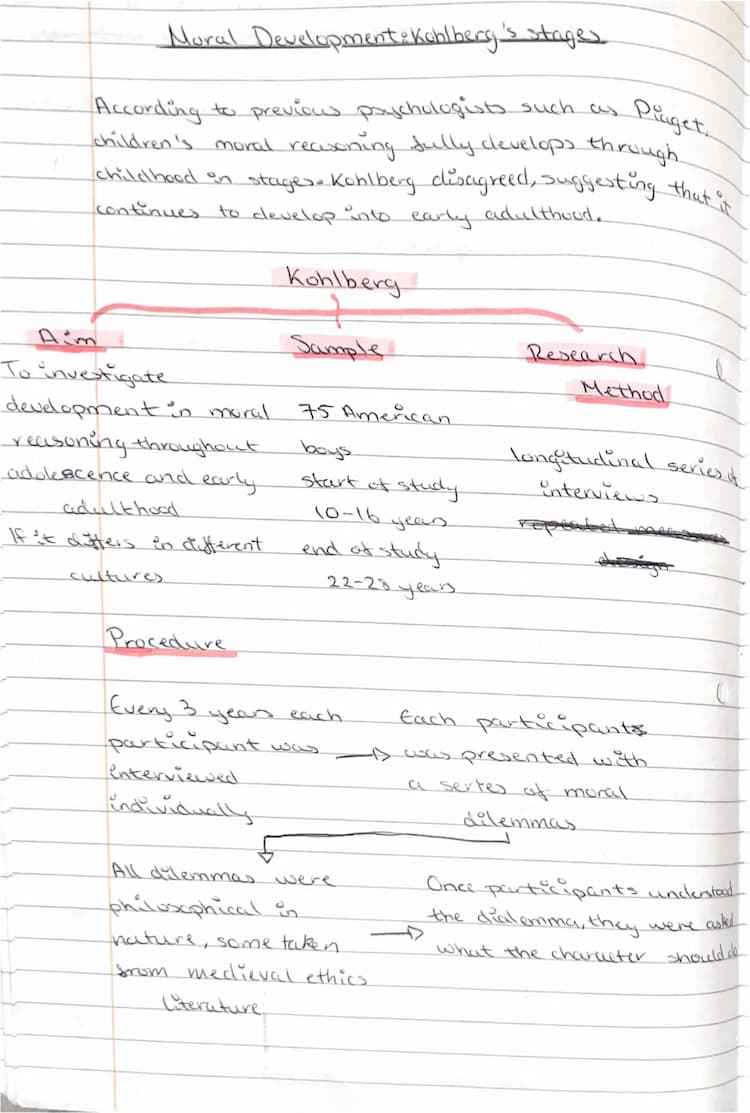 Moral Development: Kohlberg's stages
According to previous psychologists such as Piaget,
children's moral reasoning fully develops through
childhood in stages. Kohlberg disagreed, suggesting that it
continues to develop into early adulthood.
Kohlberg
Aim
To investigate
development in moral
reasoning throughout
adolescence and early
adulthood
If it differs in different
cultures
Sample
75 American
boys
start of study
10-16 years
end of study
22-28 years
Research
Method
longitudinal series of
interviews
repeated
design
Procedure
Every 3 years each
participant was
interviewed
individually
Each participants
was presented with
a series of moral
dilemmas
All dilemmas were
philosophical in
nature, some taken
from medieval ethics
literature
Once participants understood
the dialemma, they were asked
what the character should do